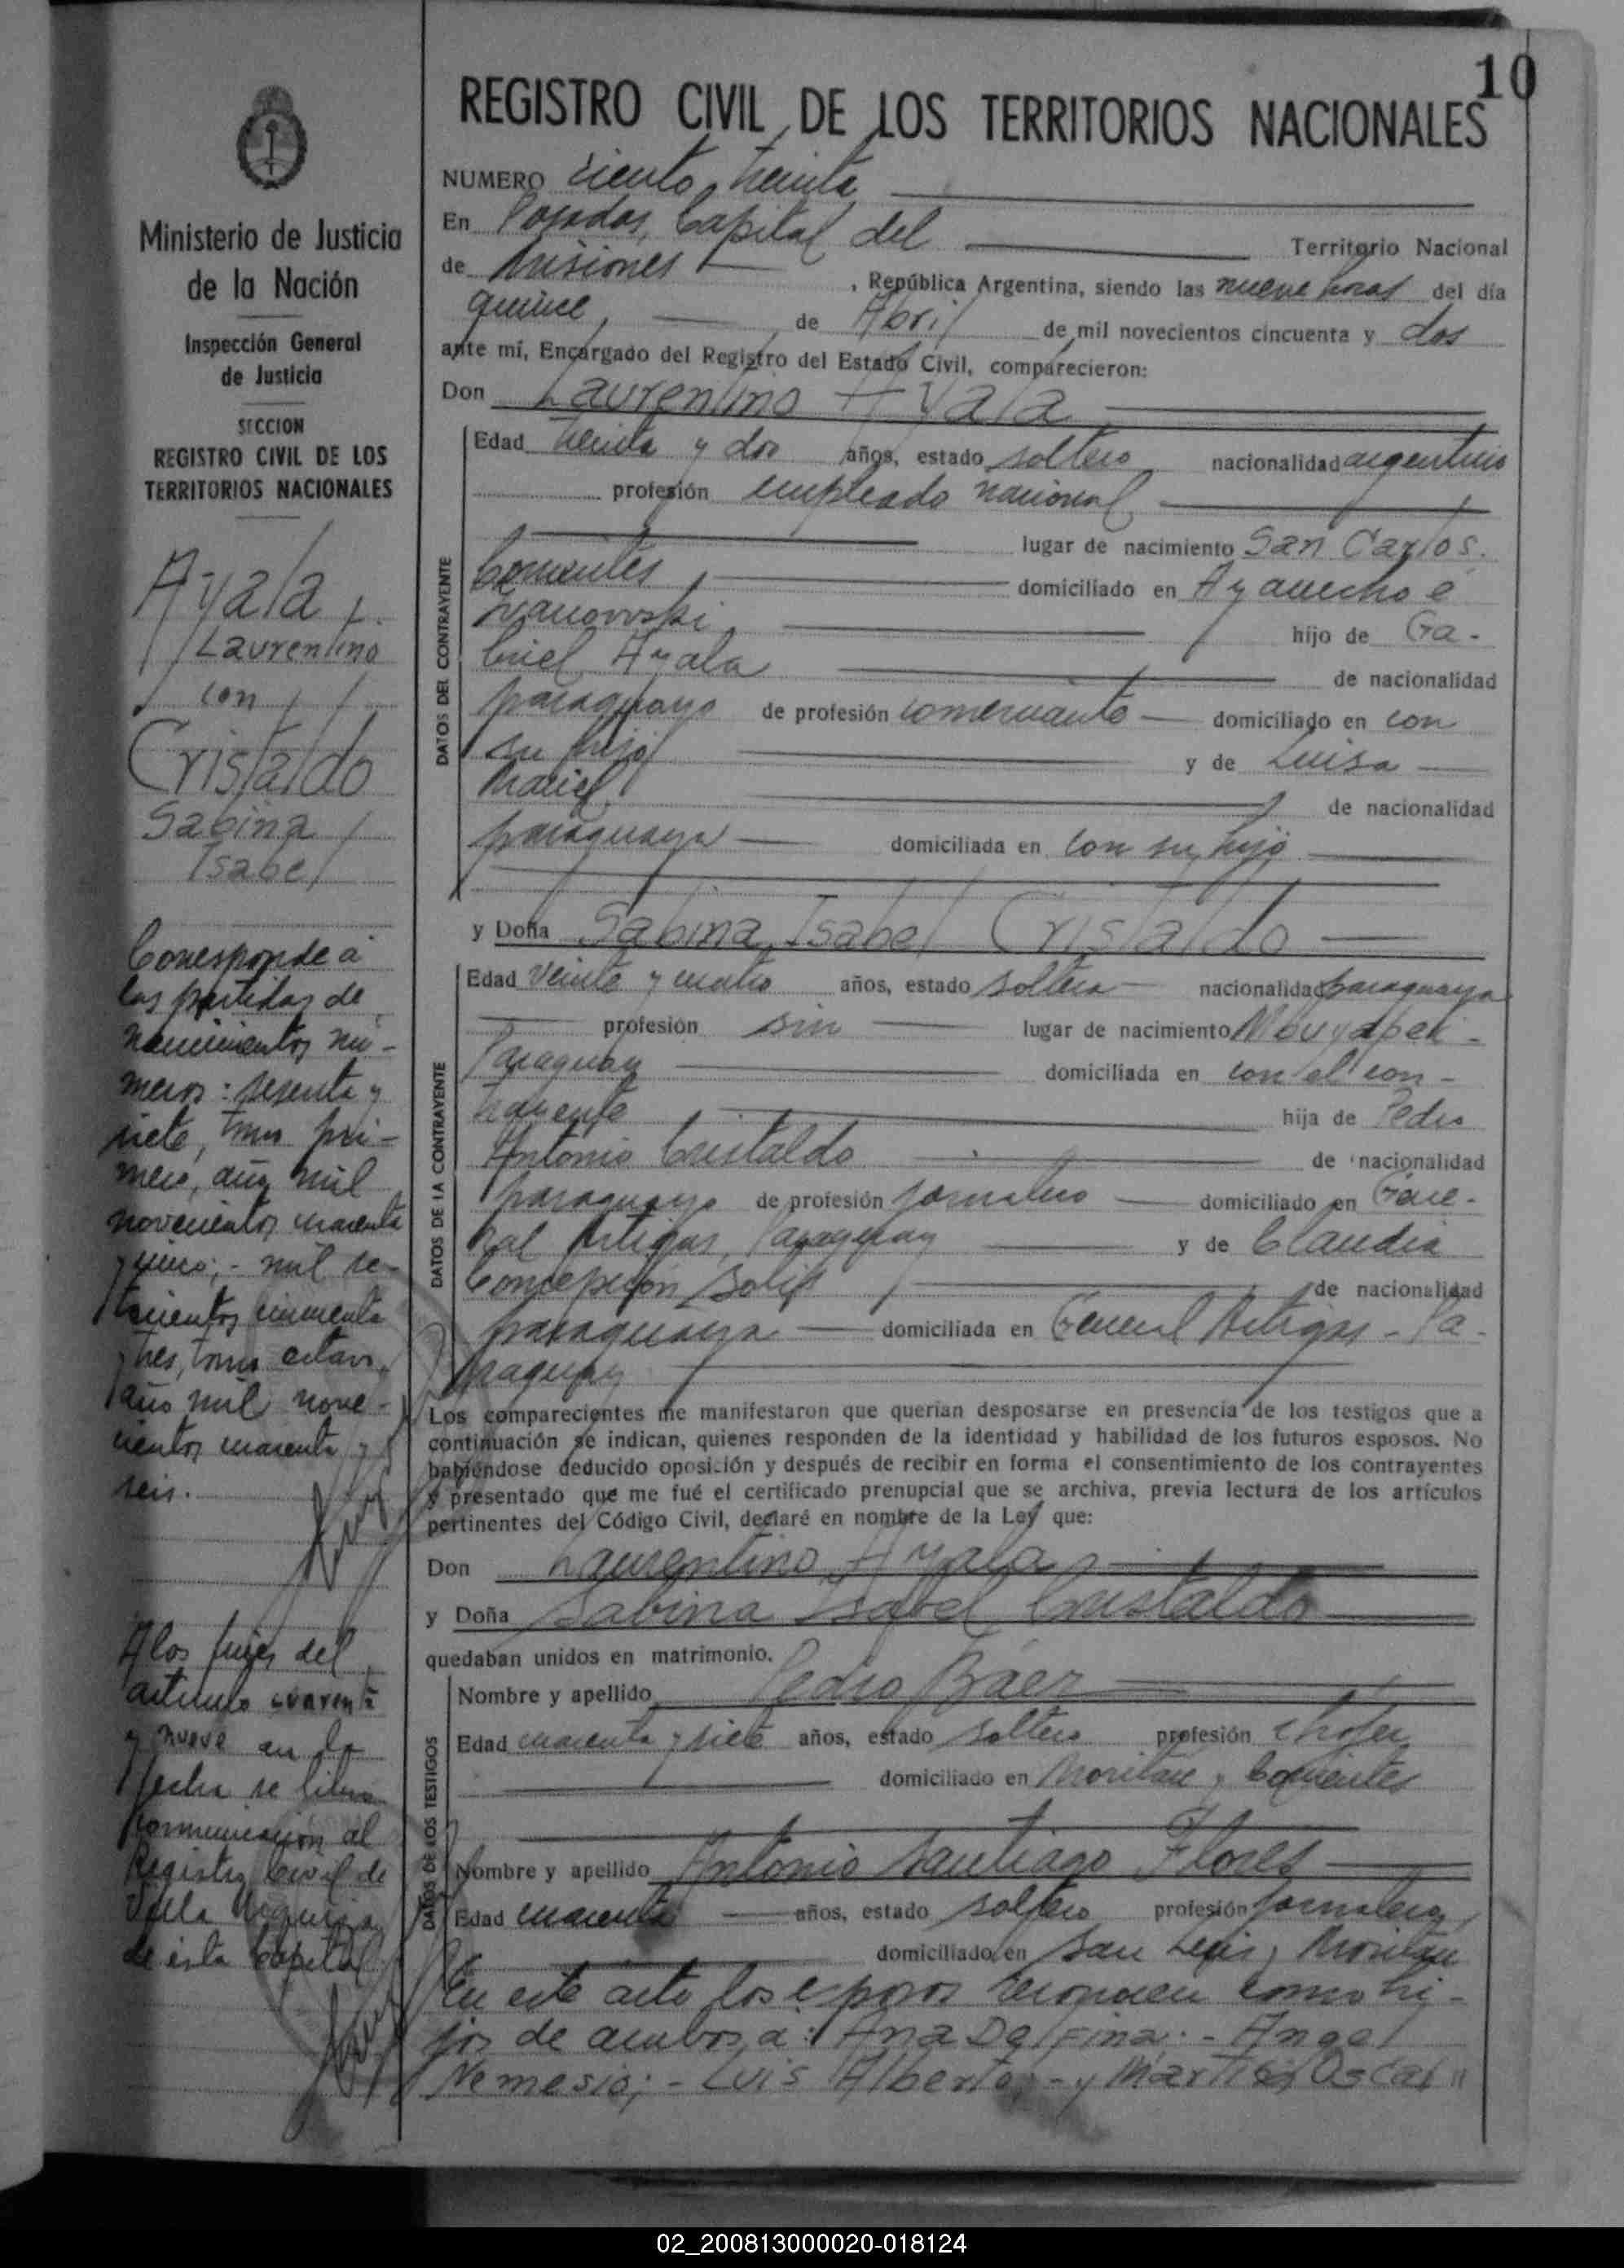 10
REGISTRO CIVIL DE LOS TERRITORIOS NACIONALES
Ministerio de Justicia
de la Nación
Inspección General
de Justicia
SECCION
REGISTRO CIVIL DE LOS
TERRITORIOS NACIONALES
Ayala
Laurentino
con
Cristaldo
Sabina
Isabel
Corresponde a
las partidas de
nacimientos nú-
meros: sesenta y
siete, tomo pri-
mero, año mil
novecientos cuarenta
y cinco; - mil se-
tecientos cincuenta
y tres, tomo octavo,
año mil nove-
cientos cuarenta y
seis.
A los fines del
artículo cuarenta
y nueve en la
fecha se libra
comunicación al
Registro Civil de
Villa Urquiza
de esta Capital
NUMERO ciento treinta
En Posadas, Capital del Territorio Nacional
de Misiones, República Argentina, siendo las nueve horas del día
quince, de Abril de mil novecientos cincuenta y dos
ante mí, Encargado del Registro del Estado Civil, comparecieron:
Don Laurentino Ayala
DATOS DEL CONTRAYENTE
Edad treinta y dos años, estado soltero nacionalidad argentino
profesión empleado nacional
lugar de nacimiento San Carlos.
Corrientes, domiciliado en Ayacucho é
hijo de Ga-
briel Ayala de nacionalidad
paraguayo de profesión comerciante domiciliado en con
su hijo y de Luisa
Maciel de nacionalidad
paraguaya domiciliada en con su hijo
y Doña Sabina Isabel Cristaldo
DATOS DE LA CONTRAYENTE
Edad veinte y cuatro años, estado soltera nacionalidad paraguaya
profesión sin lugar de nacimiento Mbuyapek-
Paraguay domiciliada en con el con-
trayente hija de Pedro
Antonio Cristaldo de nacionalidad
paraguayo de profesión jornalero domiciliado en Gene-
ral Artigas, Paraguay y de Claudia
Concepción Solis de nacionalidad
paraguaya domiciliada en General Artigas - Pa-
raguay
Los comparecientes me manifestaron que querían desposarse en presencia de los testigos que a
continuación se indican, quienes responden de la identidad y habilidad de los futuros esposos. No
habiéndose deducido oposición y después de recibir en forma el consentimiento de los contrayentes
y presentado que me fué el certificado prenupcial que se archiva, previa lectura de los artículos
pertinentes del Código Civil, declaré en nombre de la Ley que:
Don Laurentino Ayala
y Doña Sabina Isabel Cristaldo
quedaban unidos en matrimonio.
DATOS DE LOS TESTIGOS
Nombre y apellido Pedro Báez
Edad cuarenta y siete años, estado soltero profesión chofer
domiciliado en Moritán y Corrientes
Nombre y apellido Antonio Santiago Flores
Edad cuarenta años, estado soltero profesión jornalero,
domiciliado en San Luis y Moritán
En este acto los esposos reconocen como hi-
jos de ambos a: Ana Delfina; - Angel
Nemesio; - Luis Alberto; - y Oscar
02_200813000020-018124